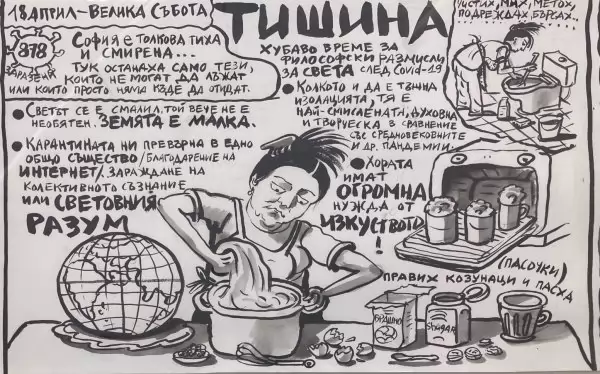 18 АПРИЛ – ВЕЛИКА СЪБОТА
ТИШИНА
878
ЗАРАЗЕНИ
СОФИЯ Е ТОЛКОВА ТИХА
И СМИРЕНА...
ТУК ОСТАНАХА САМО ТЕЗИ,
КОИТО НЕ МОГАТ ДА ЛЪЖАТ
ИЛИ КОИТО ПРОСТО НЯМА КЪДЕ ДА ОТИДАТ.
• СВЕТЪТ СЕ Е СМАЛИЛ. ТОЙ ВЕЧЕ НЕ Е
НЕОБЯТЕН. ЗЕМЯТА Е МАЛКА.
• КАРАНТИНАТА НИ ПРЕВЪРНА В ЕДНО
ОБЩО СЪЩЕСТВО /БЛАГОДАРЕНИЕ НА
ИНТЕРНЕТ/. ЗАРАЖДАНЕ НА
КОЛЕКТИВНОТО СЪЗНАНИЕ
ИЛИ СВЕТОВНИЯ
РАЗУМ
ХУБАВО ВРЕМЕ ЗА
ФИЛОСОФСКИ РАЗМИСЛИ
ЗА СВЕТА СЛЕД COVID-19
• КОЛКОТО И ДА Е ТЪЖНА
ИЗОЛАЦИЯТА, ТЯ Е
НАЙ-СМИСЛЕНАТА, ДУХОВНА
И ТВОРЧЕСКА В СРАВНЕНИЕ
СЪС СРЕДНОВЕКОВНИТЕ
И ДР. ПАНДЕМИИ.
• ХОРАТА
ИМАТ
ОГРОМНА
НУЖДА ОТ
ИЗКУСТВОТО
!
ЧИСТИХ, МИХ, МЕТОХ,
ПОДРЕЖДАХ, БЪРСАХ..
(ПАСОЧКИ)
ПРАВИХ КОЗУНАЦИ И ПАСХА
БРАШНО
SHUGAR